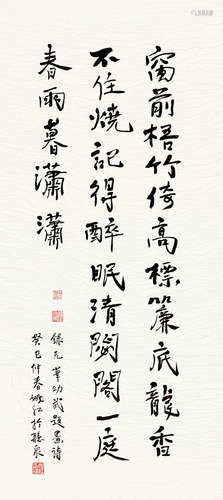 窗前梧竹倚高標簾底龍香
不住燒記得醉眠清閟閣一庭
春雨暮瀟瀟
錄元董幼武題畫詩
癸巳仲春